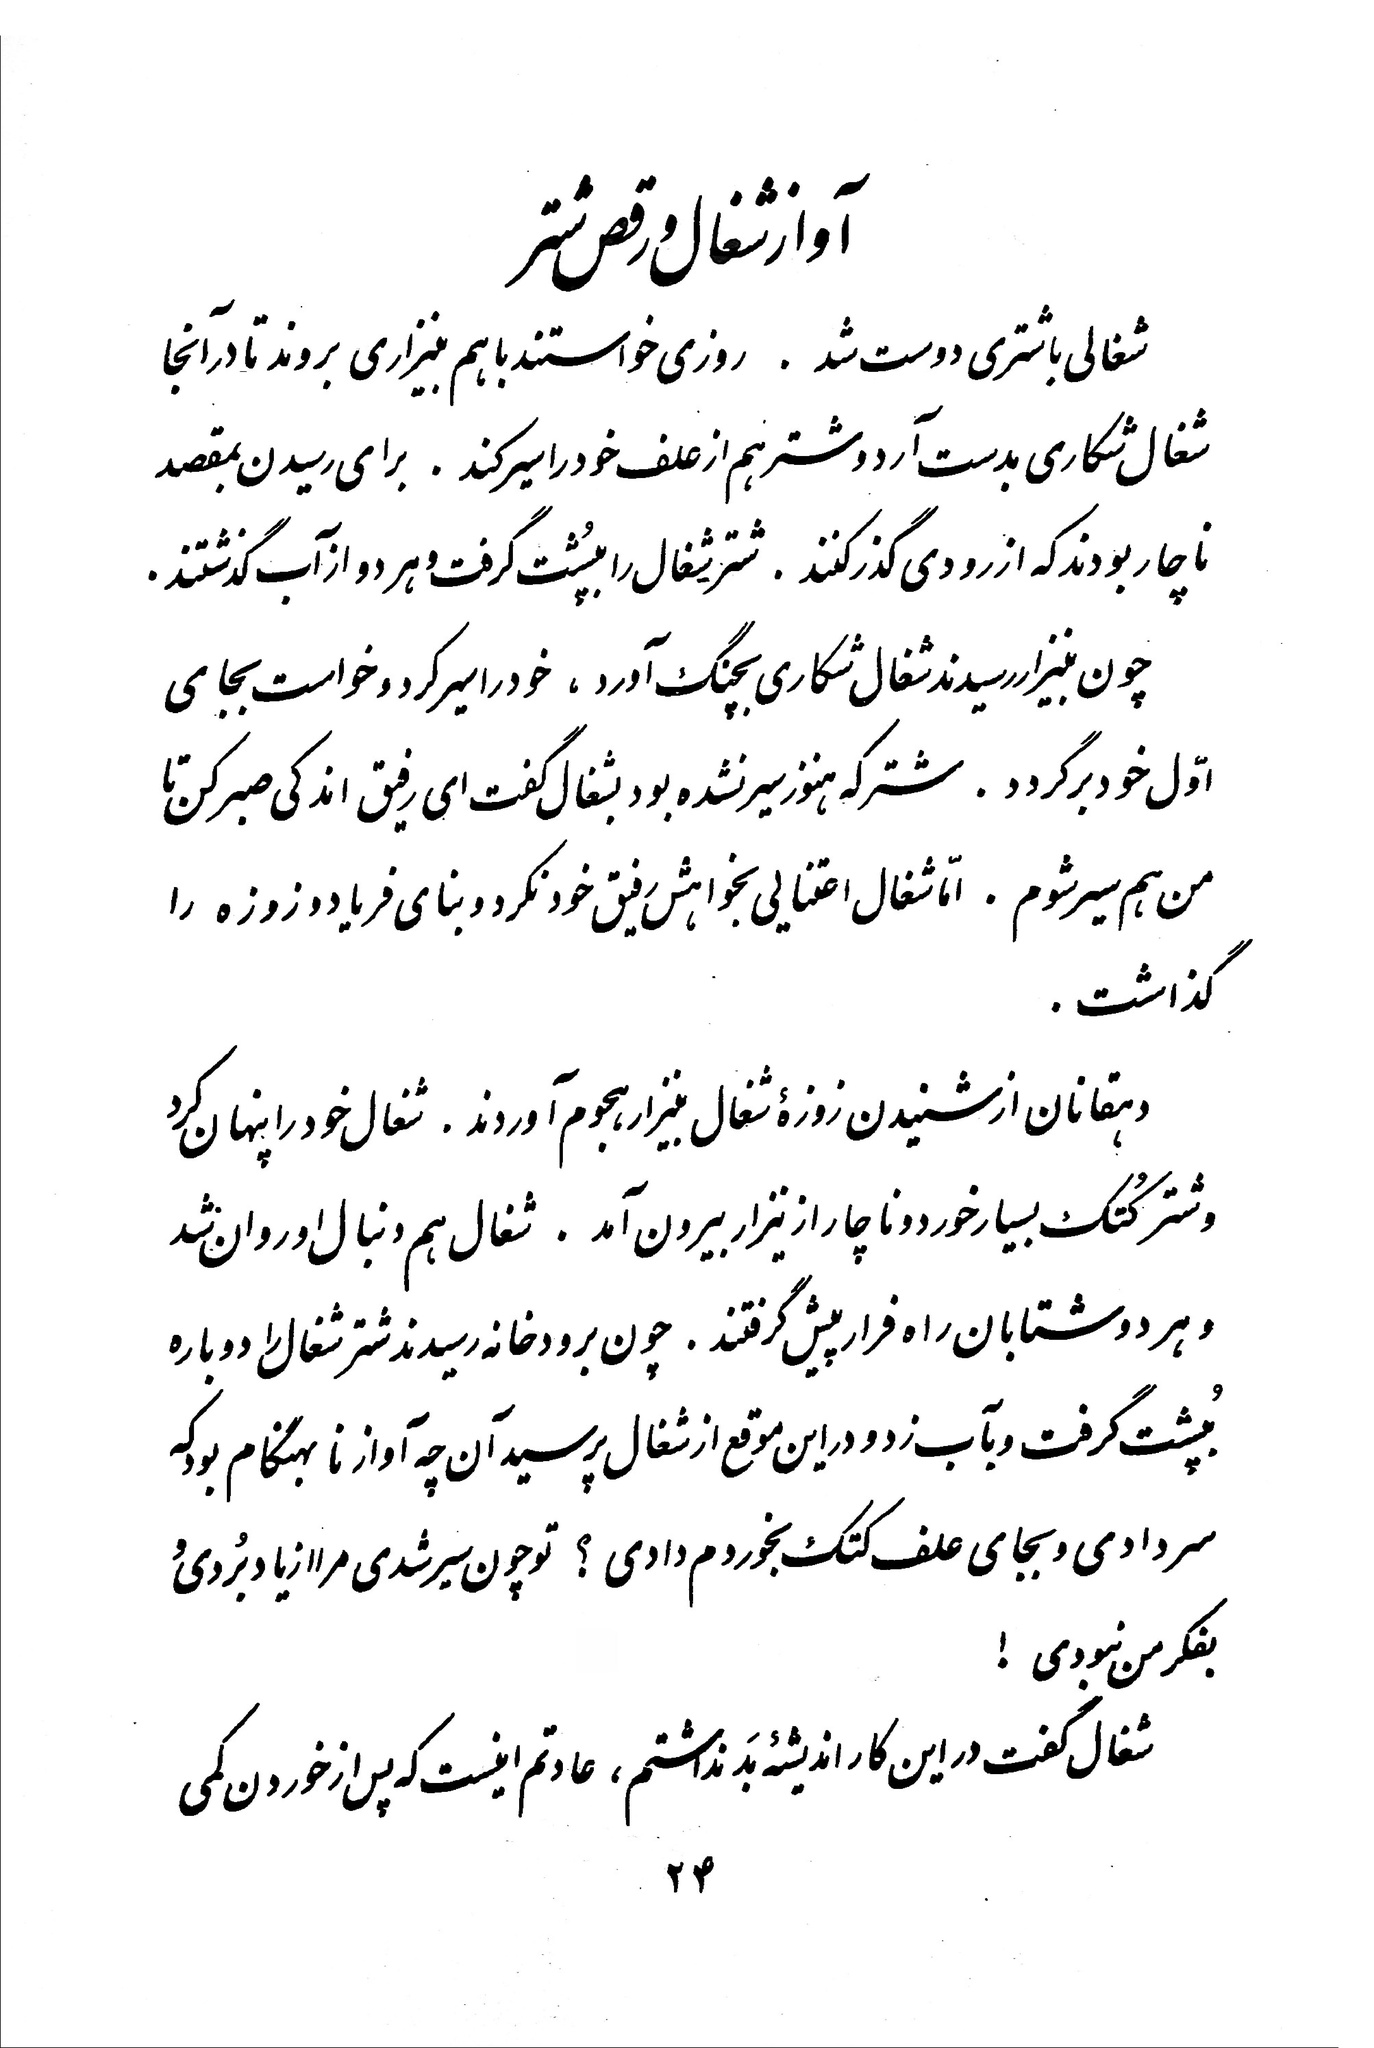 آواز شغال و رقص شتر
شغالی با شتری دوست شد . روزی خواستند باهم بنیزاری بروند تا در آنجا
شغال شکاری بدست آرد و شتر هم از علف خود را سیر کند . برای رسیدن بمقصد
ناچار بودند که از رودی گذر کنند . شتر شغال را بپُشت گرفت و هر دو از آب گذشتند .
چون بنیزار رسیدند شغال شکاری بچنگ آورد ، خود را سیر کرد و خواست بجای
اوّل خود برگردد . شتر که هنوز سیر نشده بود بشغال گفت ای رفیق اندکی صبر کن تا
من هم سیر شوم . امّا شغال اعتنایی بخواهش رَفیق خود نکرد و بنای فریاد و زوزه را
گذاشت .
دهقانان از شنیدن زوزهٔ شغال بنیزار هجوم آوردند . شغال خود را پنهان کرد
و شتر کُتک بسیار خورد و ناچار از نیزار بیرون آمد . شغال هم دنبال او روان شد
و هر دو شتابان راه فرار پیش گرفتند . چون برودخانه رسیدند شتر شغال را دوباره
بپُشت گرفت و بآب زد و در این موقع از شغال پرسید آن چه آواز نا بهنگام بود که
سر دادی و بجای علف کتک بخوردم دادی ؟ تو چون سیر شدی مرا از یاد بُردی وُ
بفکر من نبودی !
شغال گفت در این کار اندیشهٔ بَد نداشتم ، عادتم اینست که پس از خوردن کمی
۲۴